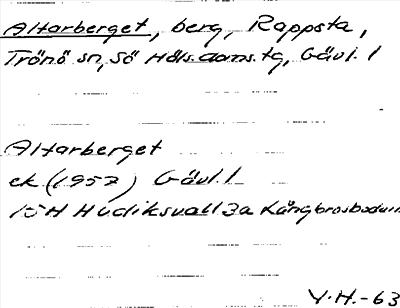 Altarberget, berg, Rappsta,
Trönö sn, Sö Häls. doms. tg, Gävl. l
Altarberget
ek (1957) Gävl. l
15H Hudiksvall 3a Långbrosbodarn
Y.H.-63